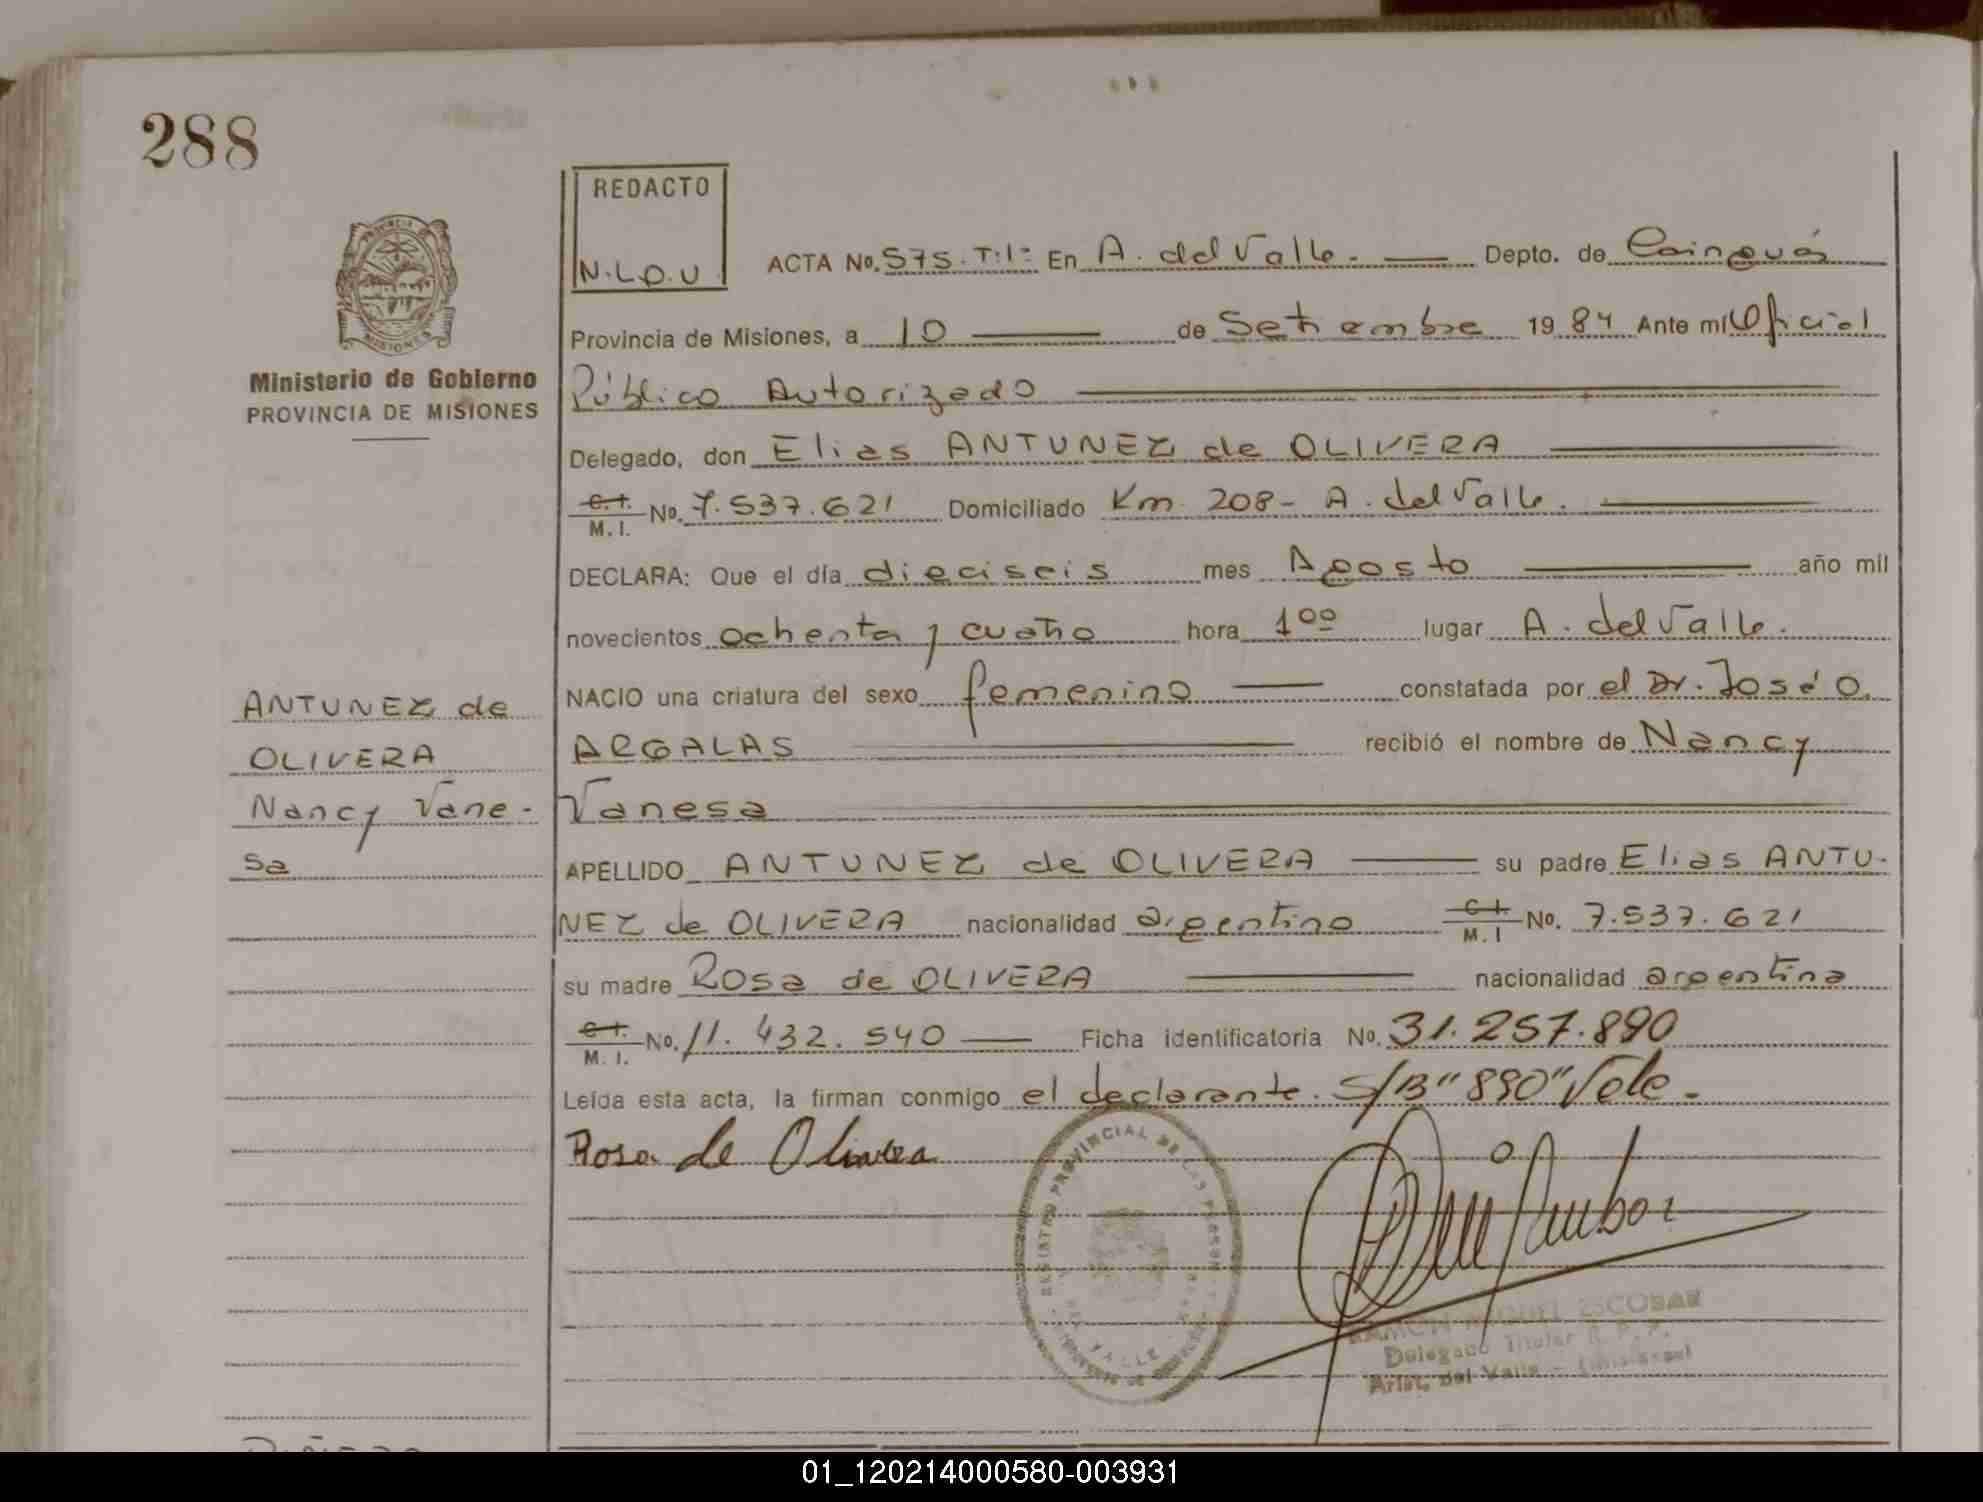 288
REDACTO
N.L.D.U
ACTA No. 575. T:1º En A. del Valle. Depto. de Cainguás
Provincia de Misiones, a 10 de Setiembre 19 84 Ante mí Oficial
Ministerio de Gobierno
PROVINCIA DE MISIONES
Público Autorizado
Delegado, don Elias ANTUNEZ de OLIVERA
C. I. M. I. No. 7.537.621 Domiciliado Km. 208 - A. del Valle.
DECLARA: Que el día dieciseis mes Agosto año mil
novecientos ochenta y cuatro hora 1ºº lugar A. del Valle.
NACIO una criatura del sexo femenino constatada por el Dr. José O.
ARGALAS recibió el nombre de Nancy
Vanesa
ANTUNEZ de
OLIVERA
Nancy Vane-
sa
APELLIDO ANTUNEZ de OLIVERA su padre Elias ANTU-
NEZ de OLIVERA nacionalidad argentino C. I. M. I No. 7.537.621
su madre Rosa de OLIVERA nacionalidad argentina
C. I. M. I. No. 11.432.540 Ficha identificatoria No. 31.257.890
Leída esta acta, la firman conmigo el declarante. S/B "890" Vale.
Rosa de Olivera
REGISTRO PROVINCIAL DE LAS PERSONAS
RAMON MIGUEL ESCOBAR
Delegado Titular R. P. P.
Arist. del Valle - (Misiones)
01_120214000580-003931